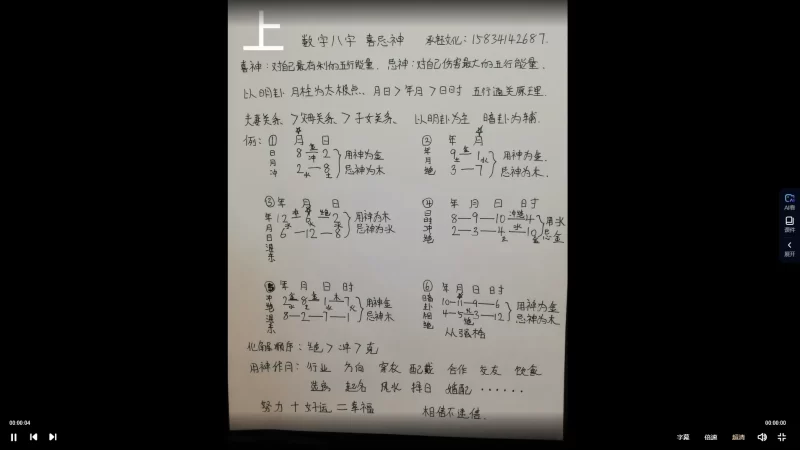 上
数字八字 喜忌神 承轻文化：15834142687.
喜神：对自己最有利的五行能量. 忌神：对自己伤害最大的五行能量.
以明卦 月柱为太极点. 月日>年月>日时 五行通关原理.
夫妻关系 >父母关系 > 子女关系. 以明卦为主 暗卦为辅.
例：① 月 日
日月冲
8 金 冲 2
2 水 8 土
用神为金
忌神为木
② 年 月
年月绝
9 金 土 1 水
3 — 7
用神为金.
忌神为木.
③ 年 月 日
年月日
12 6 2
6 — 12 — 8
用神为木
忌神为水
④ 年 月 日 时
日时冲绝
8 — 9 — 10 冲绝 4
2 — 3 — 4 水 10
土 金
用水
忌金
⑤ 年 月 日 时
冲绝
2 金 8 金 1 木 7
土 水 火
8 — 2 — 7 — 1
用神金
忌神木
⑥ 年 月 日 时
暗卦
绝
10 — 11 — 9 — 6
4 — 5 — 3 — 12
绝
用神为金
忌神为木
从强格
化解顺序：绝 > 冲 > 克
用神作用：行业 方向 穿衣 配戴 合作 交友 饮食
装房 起名 风水 择日 婚配 ······
努力 + 好运 = 幸福 相信不迷信.
AI看
课件
展开
00:00:04
00:00:00
字幕
倍速
超清